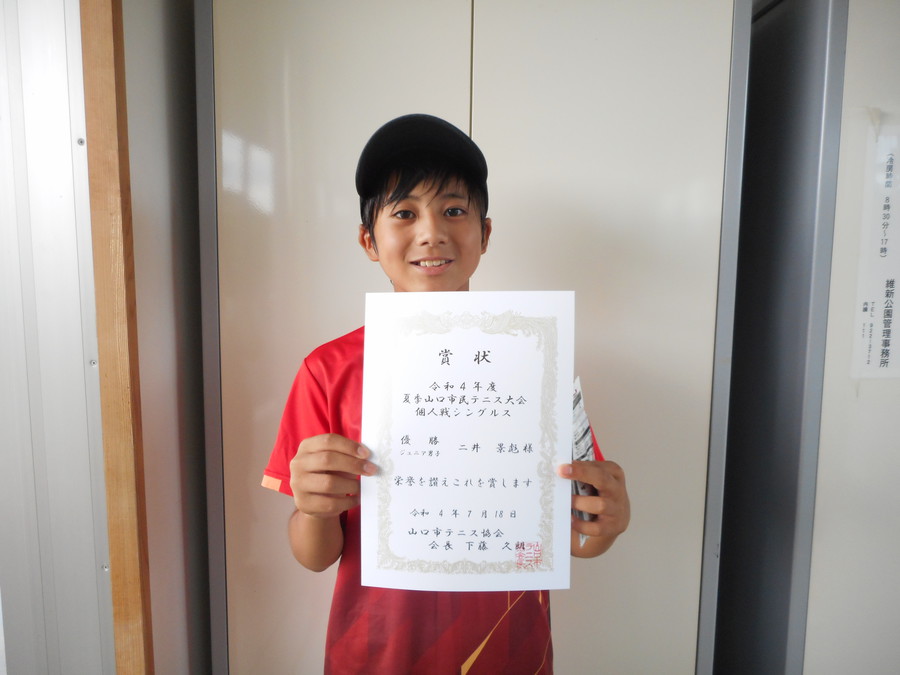 賞状
令和4年度
夏季山口市民テニス大会
個人戦シングルス
優勝
ジュニア男子
二井 景彪様
栄誉を讃えこれを賞します
令和4年7月18日
山口市テニス協会
会長 下藤 久
8時30分〜17時)
維新公園管理事務所
TEL